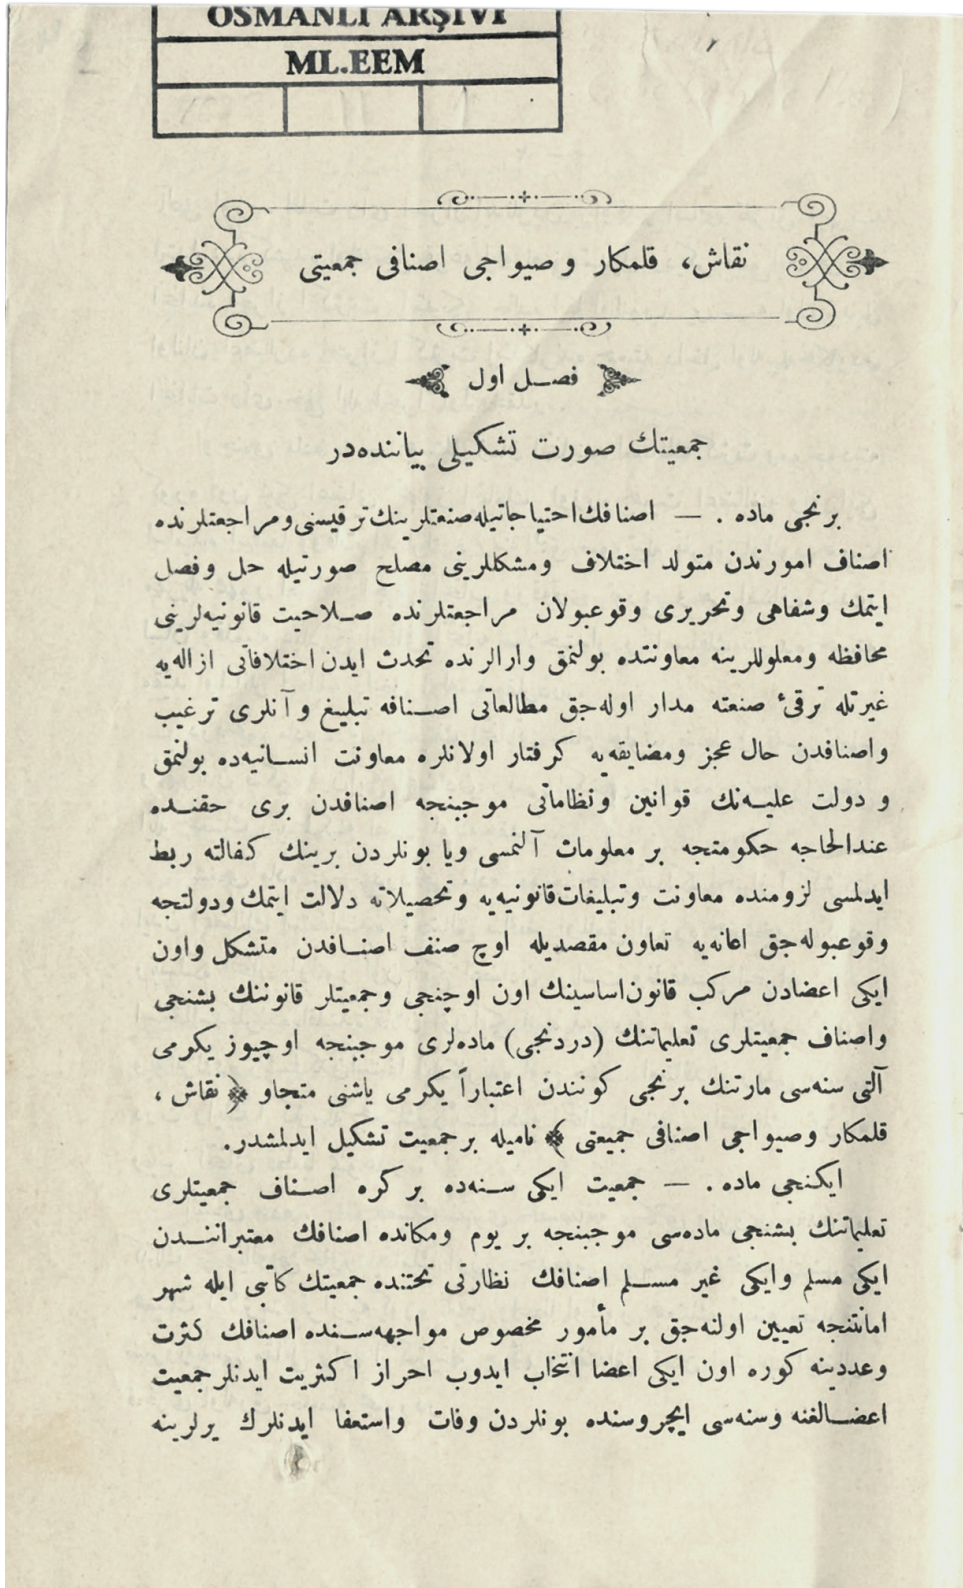 OSMANLI ARŞİVİ
ML.EEM
نقاش، قلمكار و صيواجى اصنافى جمعيتى
فصل اول
جمعيتك صورت تشكيلى بياننده‌در
برنجى ماده . — اصنافك احتياجاتيله صنعتلرينك ترقيسنى ومراجعتلرنده
اصناف امورندن متولد اختلاف ومشكللرينى مصلح صورتيله حل وفصل
ايتمك وشفاهى وتحريرى وقوعبولان مراجعتلرنده صلاحيت قانونيه‌لرينى
محافظه ومعلوللرينه معاونتده بولنمق وارالرنده تحدث ايدن اختلافاتى ازاله‌يه
غيرتله ترقئ صنعته مدار اوله‌جق مطالعاتى اصنافه تبليغ و آنلرى ترغيب
واصنافدن حال عجز ومضايقه‌يه كرفتار اولانلره معاونت انسانيه‌ده بولنمق
و دولت عليه‌نك قوانين ونظاماتى موجبنجه اصنافدن برى حقنده
عندالحاجه حكومتجه بر معلومات آلنمسى ويا بونلردن برينك كفالته ربط
ايدلمسى لزومنده معاونت وتبليغات قانونيه‌يه وتحصيلاته دلالت ايتمك ودولتجه
وقوعبوله‌جق اعانه‌يه تعاون مقصديله اوچ صنف اصنافدن متشكل واون
ايكى اعضادن مركب قانون‌اساسينك اون اوچنجى وجمعيتلر قانوننك بشنجى
واصناف جمعيتلرى تعليماتنك (دردنجى) ماده‌لرى موجبنجه اوچيوز يكرمى
آلتى سنه‌سى مارتنك برنجى كونندن اعتباراً يكرمى ياشنى متجاو ﴿ نقاش ،
قلمكار وصيواجى اصنافى جميعتى ﴾ ناميله برجمعيت تشكيل ايدلمشدر.
ايكنجى ماده . — جمعيت ايكى سنه‌ده بركره اصناف جمعيتلرى
تعليماتنك بشنجى ماده‌سى موجبنجه بر يوم ومكانده اصنافك معتبراننــدن
ايكى مسلم وايكى غير مسلم اصنافك نظارتى تحتنده جمعيتك كاتبى ايله شهر
امانتنجه تعيين اولنه‌جق بر مأمور مخصوص مواجهه‌سنده اصنافك كثرت
وعددينه كوره اون ايكى اعضا انتخاب ايدوب احراز اكثريت ايدنلر جمعيت
اعضالغنه وسنه‌سى ايچروسنده بونلردن وفات واستعفا ايدنلرك يرلرينه